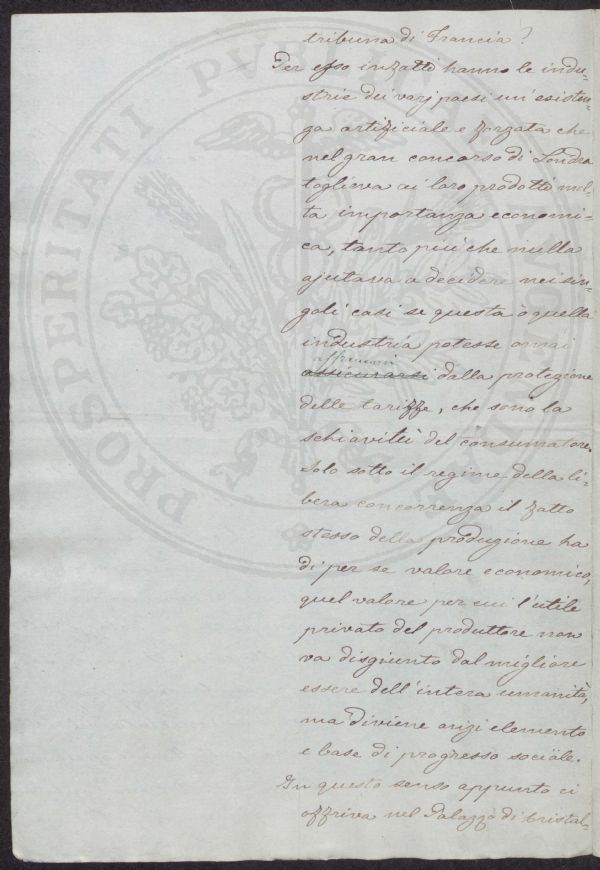 tribuna di Francia?
Per esso infatti hanno le indu-
strie dei varj paesi un'esisten-
za artifiziale e forzata che
nel gran concorso di Londra
toglieva ai loro prodotti mol-
ta importanza economi-
ca, tanto più che nulla
ajutava a decidere nei sin-
goli casi se questa o quella
industria potesse omai
affrancarsi
assicurarsi dalla protezione
delle tariffe, che sono la
schiavitù del consumatore.
Solo sotto il regime della li-
bera concorrenza il fatto
stesso della produzione ha
di per se valore economico,
quel valore per cui l'utile
privato del produttore non
va disgiunto dal migliore
essere dell'intera umanità,
ma diviene anzi elemento
e base di progresso sociale.
In questo senso appunto ci
offriva nel Palazzo di Cristal-
PROSPERITATI PVBLICAE AVGENDAE